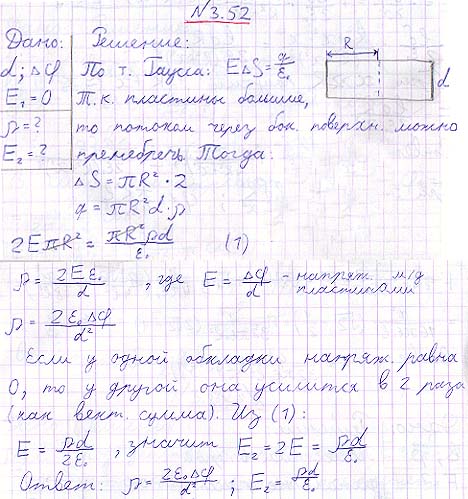 №3.52
Дано: Решение:
d; Δφ По т. Гаусса: EΔS = q/ε₀
E₁ = 0 Т.к. пластины большие,
ρ = ? то потоком через бок. поверхн. можно
E₂ = ? пренебречь. Тогда:
R
d
ΔS = πR² · 2
q = πR²d · ρ
2EπR² = πR²ρd/ε₀ (1)
ρ = 2Eε₀/d , где E = Δφ/d - напряж. м/д пластинами
ρ = 2ε₀Δφ/d²
Если у одной обкладки напряж. равна
0, то у другой она усилится в 2 раза
(как вект. сумма). Из (1):
E = ρd/2ε₀ , значит E₂ = 2E = ρd/ε₀
Ответ: ρ = 2ε₀Δφ/d² ; E₂ = ρd/ε₀